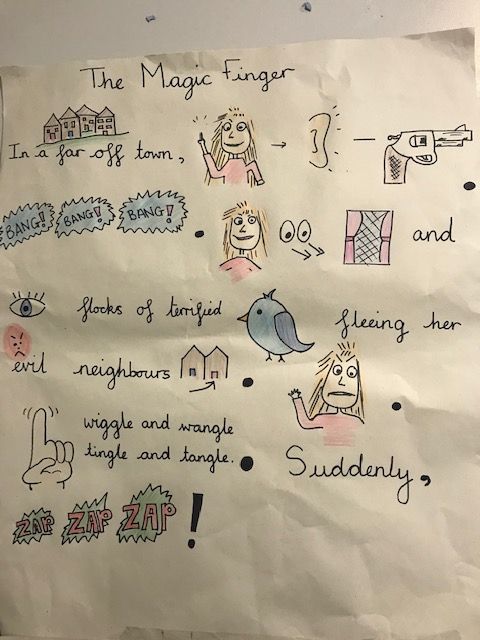 The Magic Finger
In a far off town,
BANG! BANG! BANG!
and
flocks of terrified
fleeing her
evil neighbours
wiggle and wangle
tingle and tangle.
Suddenly,
ZAP ZAP ZAP!